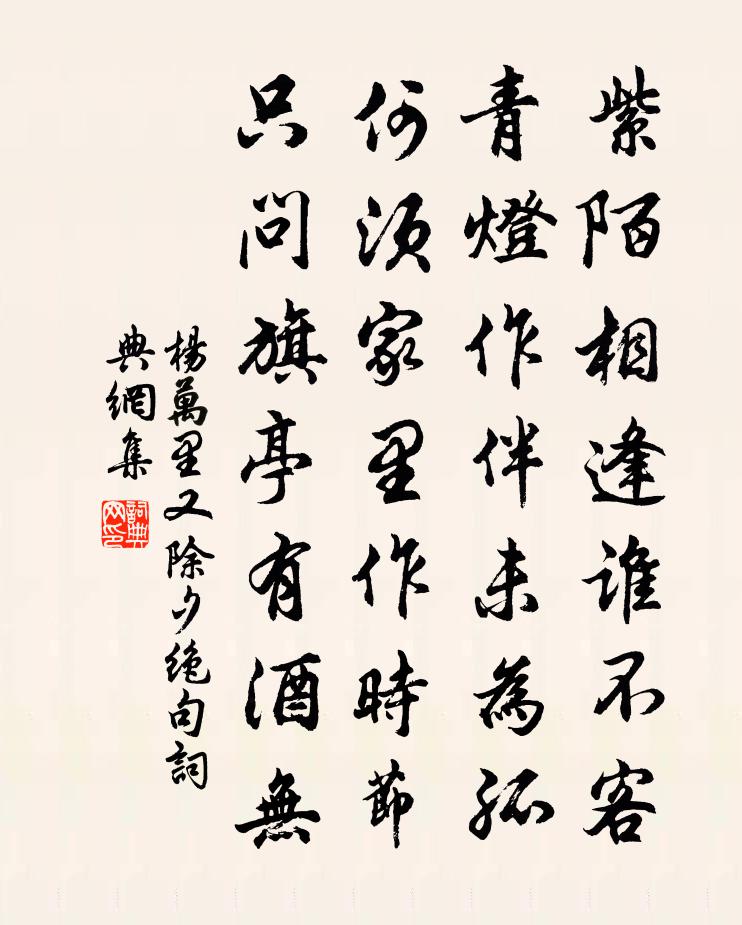 紫陌相逢誰不客
青燈作伴未為孤
何須家里作時節
只問旗亭有酒無
楊萬里又除夕絶句詞
典網集
詞典
网印